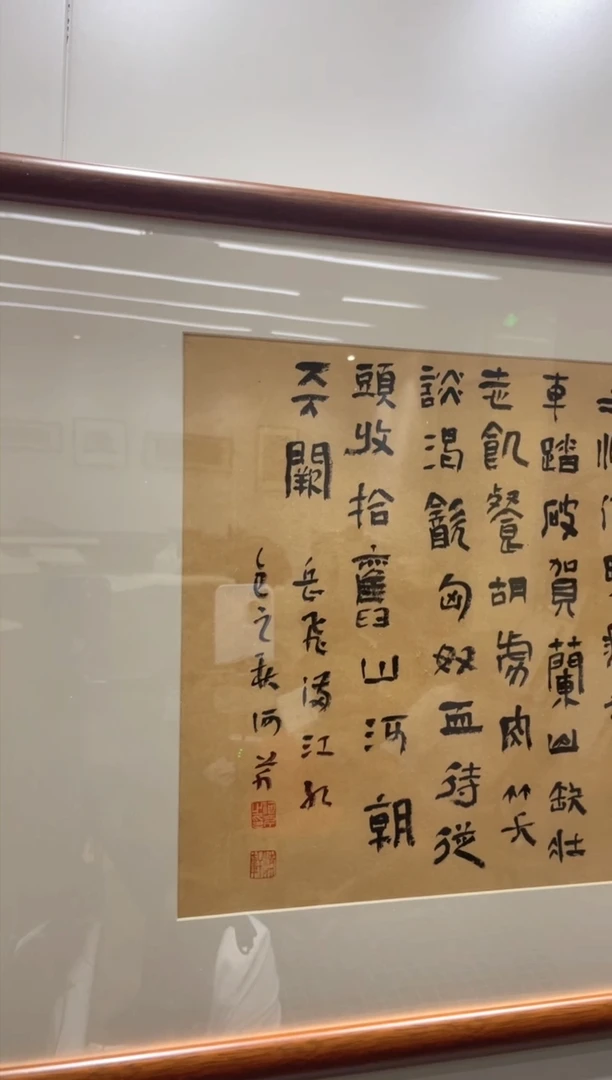 車踏破賀蘭山缺壯
志飢餐胡虜肉笑
談渴飲匈奴血待從
頭收拾舊山河朝
天闕 岳飛滿江紅
之秋河